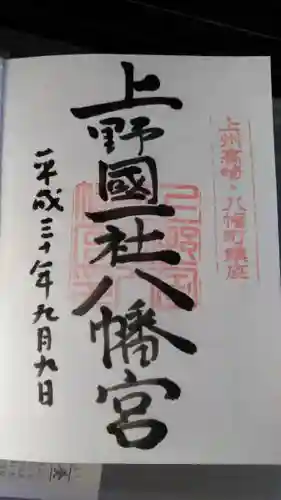 上州高崎・八幡町鎮座
上野國一社八幡宮
平成三十年九月九日